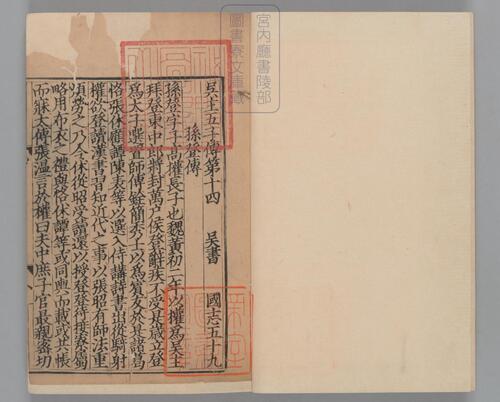 吳主五子傳第十四 吳書 國志五十九
孫登傳
孫登字子高權長子也魏黃初二年以權爲吳王
拜登東中郎將封萬戶侯登辭疾不受是歲立登
爲太子選置師傅銓簡秀士以爲賓友於是諸葛
恪張休顧譚陳表等以選入侍講詩書出從騎射
權欲登讀漢書習知近代之事以張昭有師法重
煩勞之乃令休從昭受讀還以授登登待接寮屬
略用布衣之禮與恪休譚等或同輿而載或共帳
而寐太傅張溫言於權曰夫中庶子官最親密切
宮內廳書陵部
圖書寮文庫藏